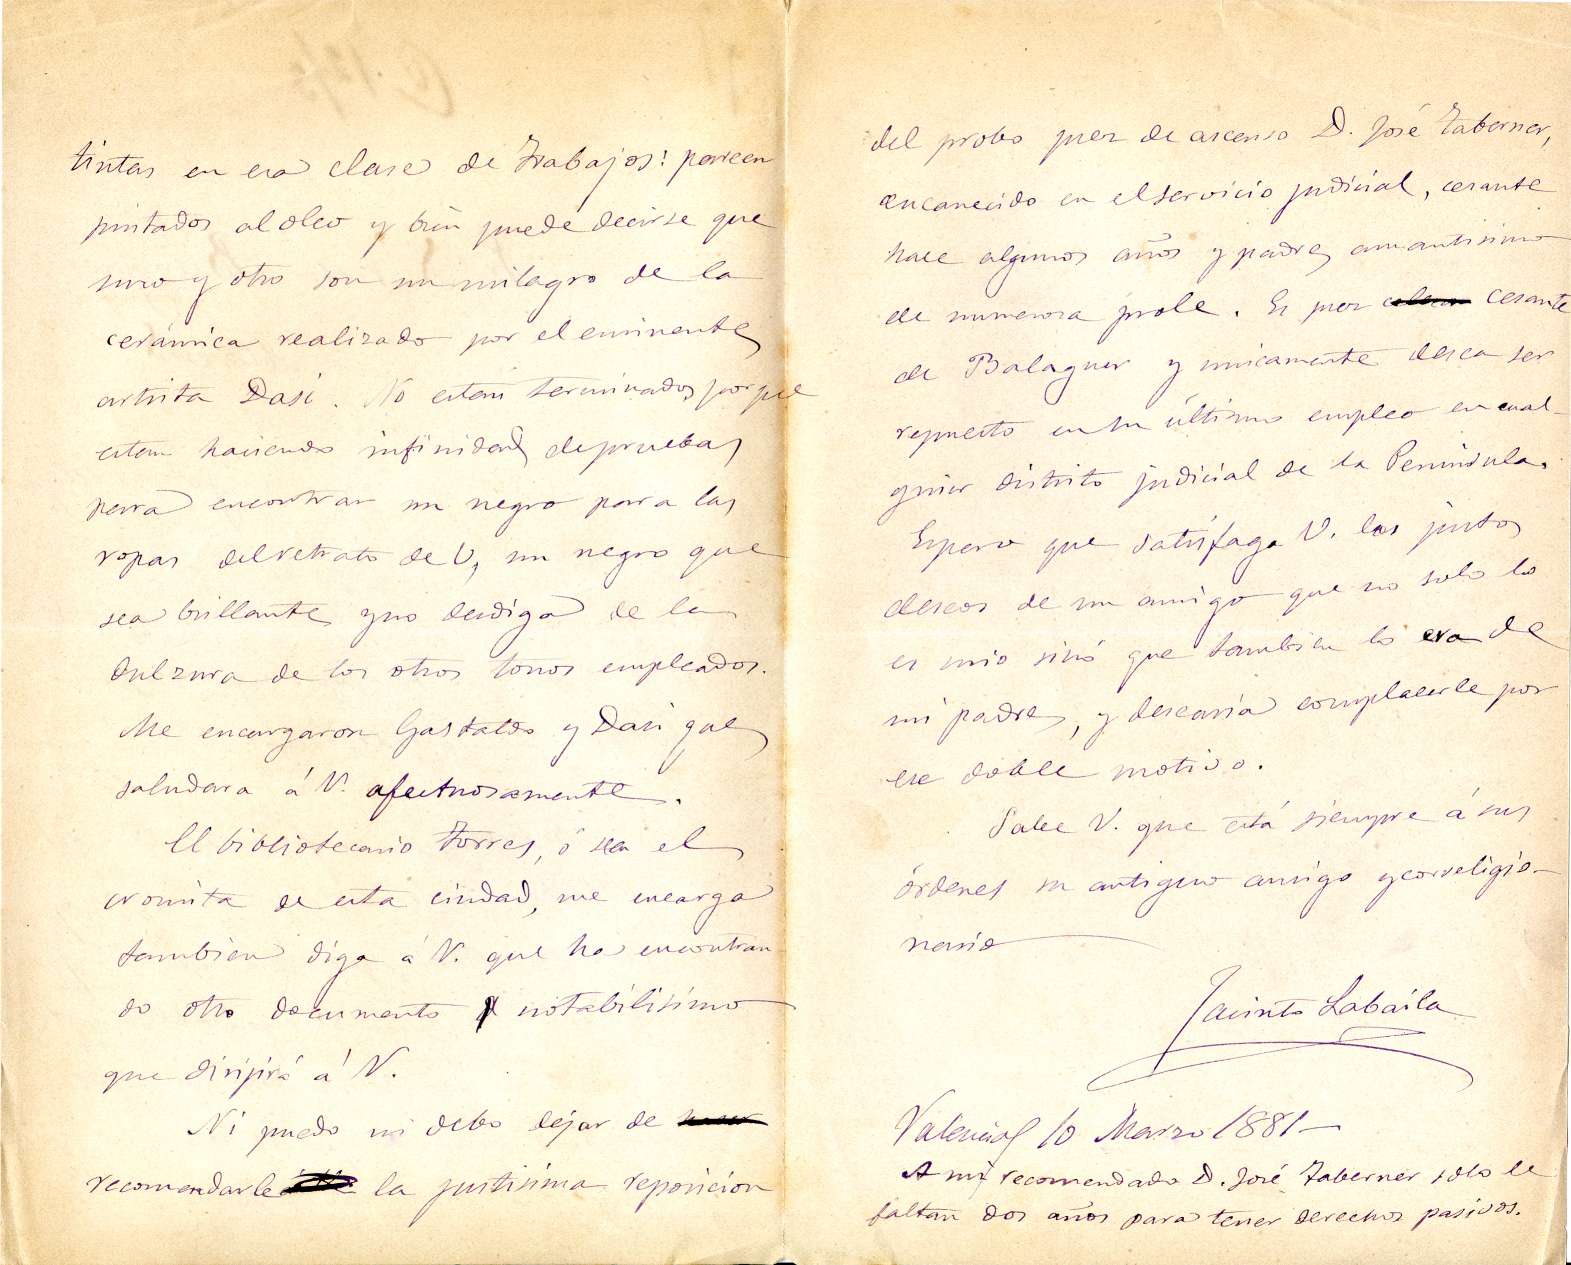 tintas en esa clase de trabajos: parecen
pintados al oleo y bien puede decirse que
uno y otro son un milagro de la
cerámica realizado por el eminente
artista Dasi. No están terminados porque
estan haciendo infinidad de pruebas
para encontrar un negro para las
ropas del retrato de V, un negro que
sea brillante y no desdiga de la
dulzura de los otros tonos empleados.
Me encargaron Gastaldo y Dasi que
saludara á V. afectuosamente.
El bibliotecario Torres, ó sea el
cronista de esta ciudad, me encarga
tambien diga á V. que ha encontran
do otro documento notabilisimo
que dirijirá á V.
Ni puedo ni debo dejar de hacer
recomendarle la justisima reposicion
del probo juez de ascenso D. José Taberner,
encanecido en el servicio judicial, cesante
hace algunos años y padre amantisimo
de numerosa prole. Es juez cesante
de Balaguer y unicamente desea ser
repuesto en su último empleo en cual-
quier distrito judicial de la Peninsula.
Espero que satisfaga V. los justos
deseos de un amigo que no solo lo
es mio sinó que tambien lo era de
mi padre, y desearia complacerle por
ese doble motivo.
Sabe V. que está siempre á sus
órdenes su antiguo amigo y correligio-
nario
Jacinto Labaila
Valencia 10 Marzo 1881-
A mi recomendado D. José Taberner solo le
faltan dos años para tener derechos pasivos.